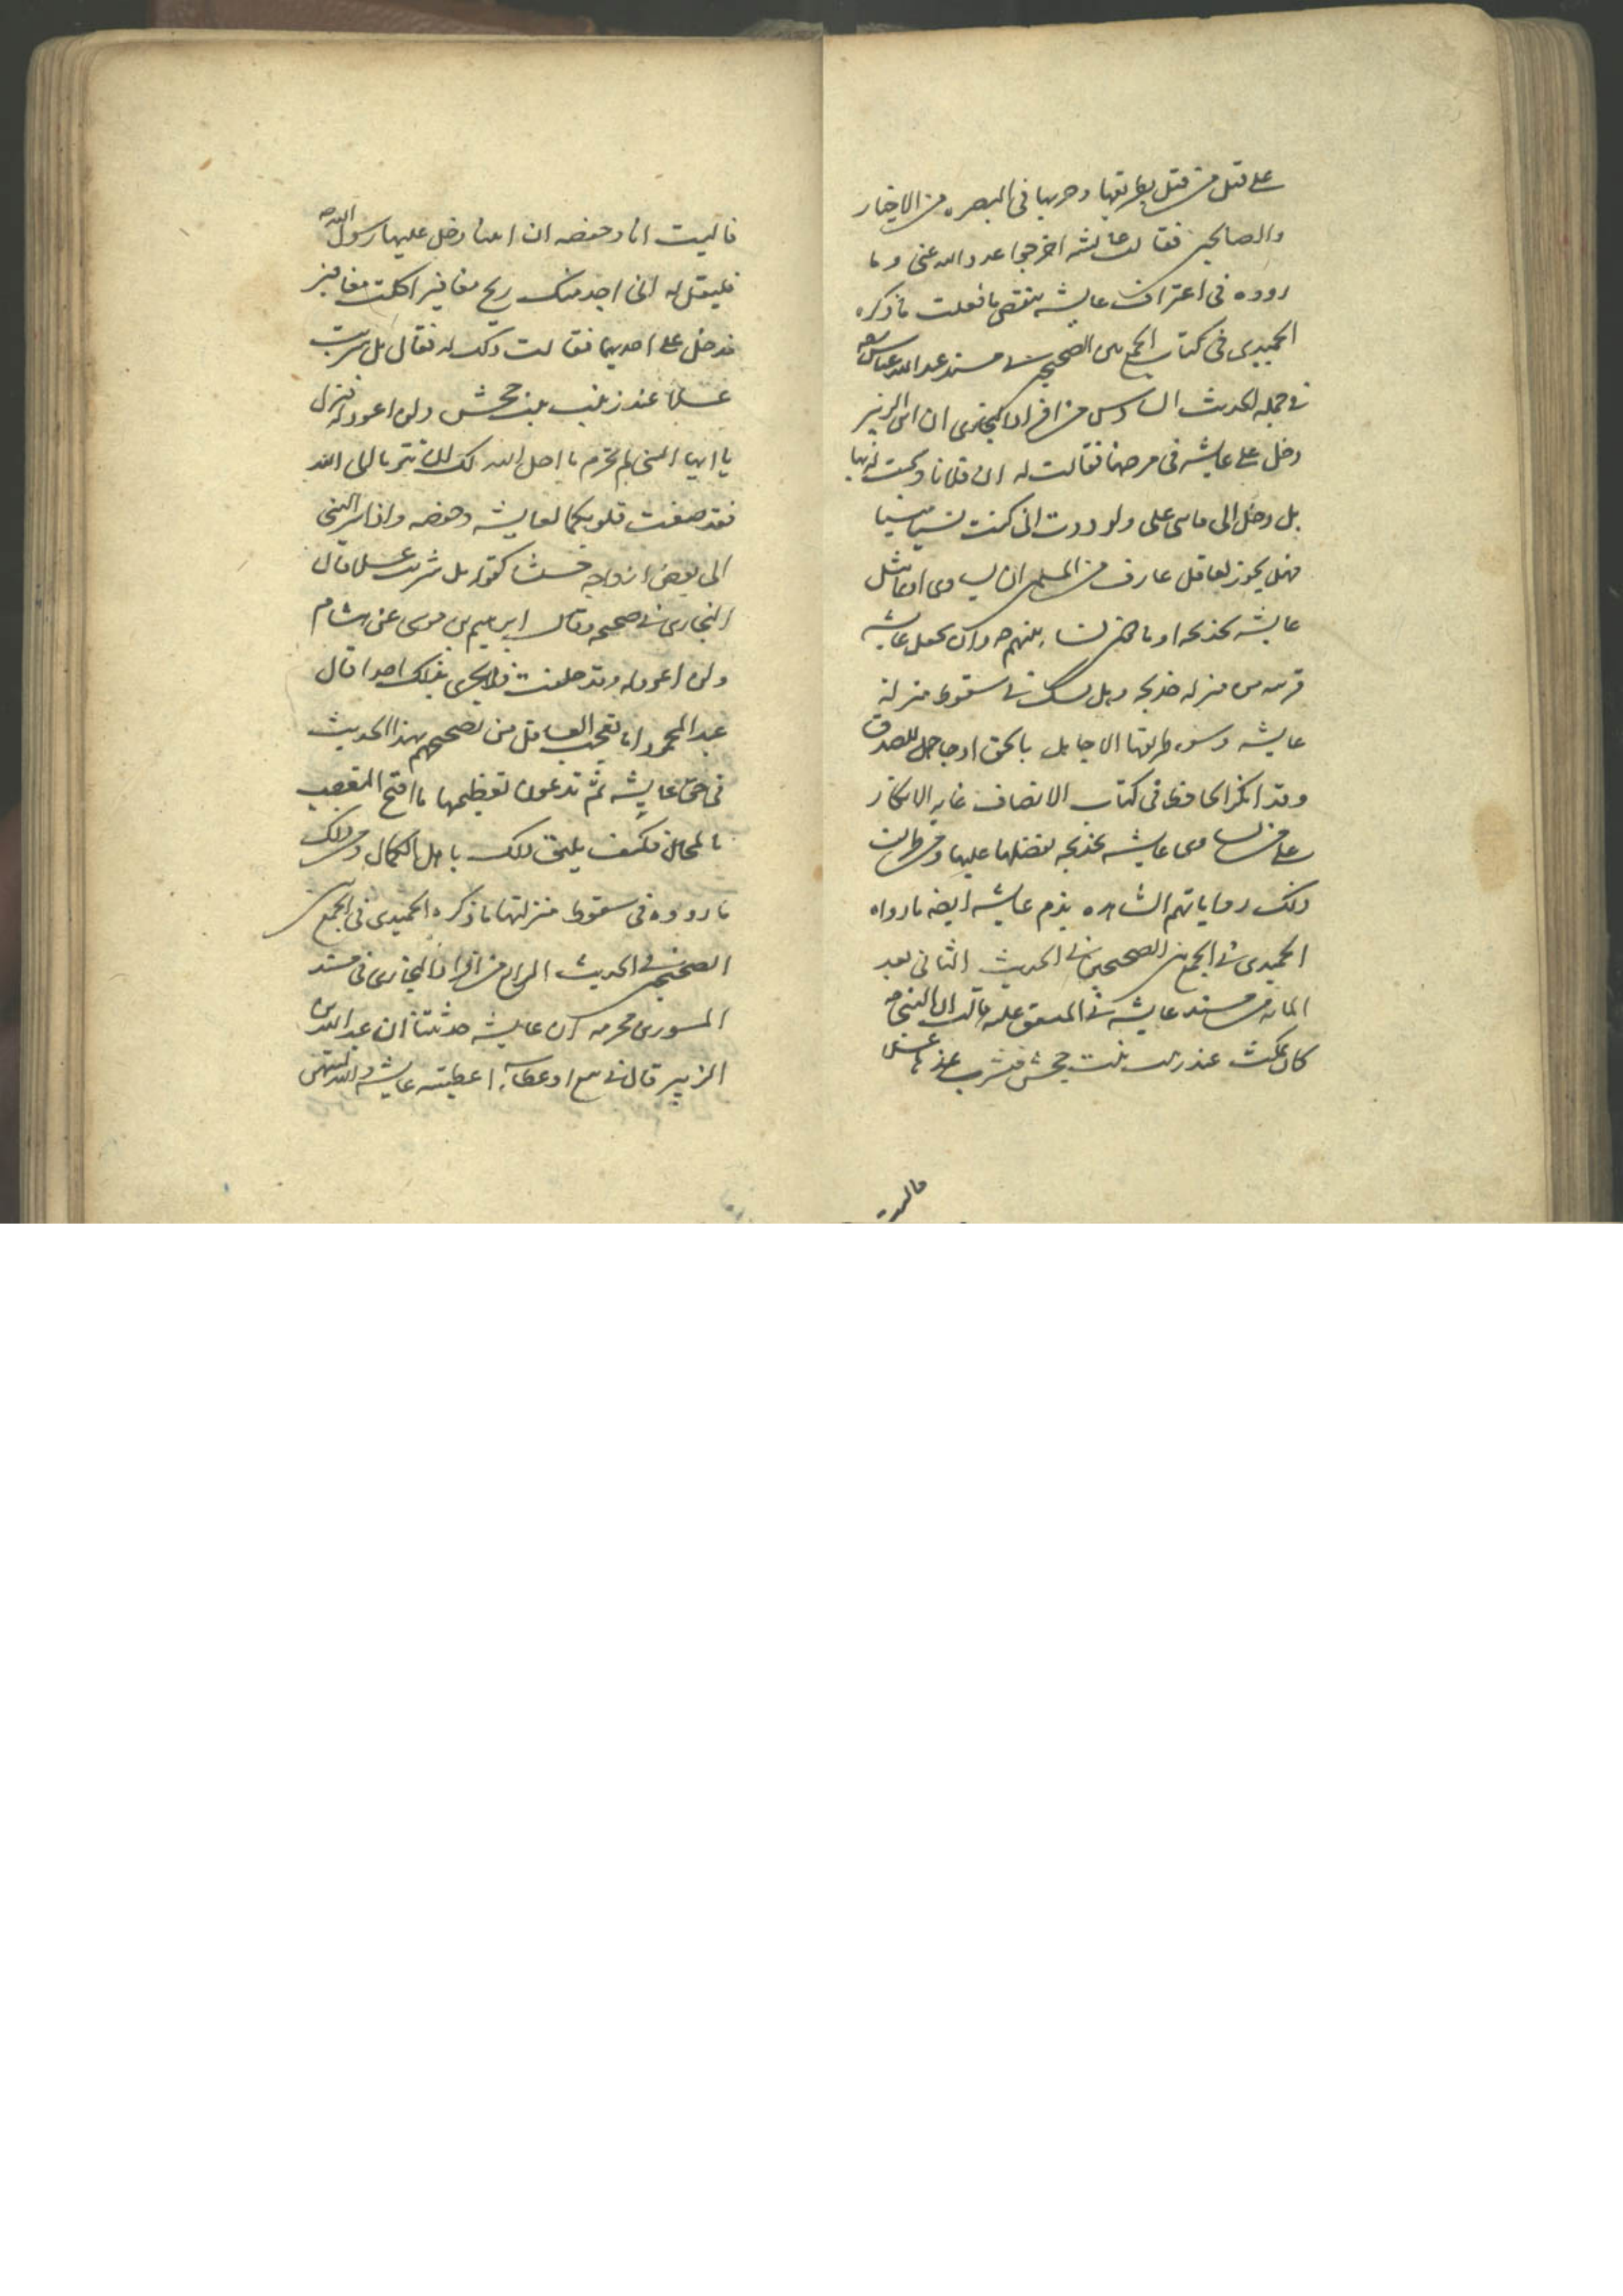 على قتل من قتل بطريقها وحربها فى البصره من الاخيار
والصالحين فقالت عايشه اخرجوا عدو الله عنى وما
رووه فى اعتراف عايشه بنقص ما فعلت ما ذكره
الحميدى فى كتاب الجمع بين الصحيحين فى مسند عبد الله بن عباس
فى جمله الحديث السادس من افراد البخارى ان ابن الزبير
دخل على عايشه فى مرضها فقالت له ان فلانا
دخل الى فاثنى على ولوددت انى كنت نسيا منسيا
فهل يجوز لعاقل عارف من المسلمين ان يساوى او يماثل
عايشه بخديجه او بينهم وان يجعل عايشه
قريبه من منزله خديجه وهل يشك فى سقوط منزله
عايشه وسوء طريقها الا جاهل بالحق او جاحد للصدق
وقد انكر الجاحظ فى كتاب الانصاف غايه الانكار
على من يساوى عايشه بخديجه او يفضلها عليها ومن طرايف
ذلك رواياتهم الشاهده بذم عايشه ايضه ما رواه
الحميدى فى الجمع بين الصحيحين فى الحديث الثانى بعد
المائه من مسند عايشه فى المتفق عليه قالت ان النبى ص
كان يمكث عند زينب بنت جحش فشرب عندها عسلا
فاليت
فاليت انا وحفصه ان ايتنا دخل عليها رسول الله ص
فليقل له انى اجد منك ريح مغافير اكلت مغافير
فدخل على احديهما فقالت ذلك له فقال بل شربت
عسلا عند زينب بنت جحش ولن اعود له فنزل
يا ايها النبى لم تحرم ما احل الله لك ان تتوبا الى الله
فقد صغت قلوبكما لعايشه وحفصه واذ اسر النبى
الى بعض ازواجه حديثا كقوله بل شربت عسلا قال
البخارى فى صحيحه وقال ابرهيم بن موسى عن هشام
ولن اعود له وقد حلفت فلا تخبرى بذلك احدا قال
عبد المحمود اما تعجب العاقل من تصحيحهم بهذا الحديث
فى حق عايشه ثم تدعون تعظيمها ما اقبح التعصب
بالمحال فكيف يليق ذلك باهل الكمال ومن ذلك
ما رووه فى سقوط منزلتها ما ذكره الحميدى فى الجمع بين
الصحيحين فى الحديث الرابع من افراد البخارى فى مسند
المسور بن مخرمه ان عايشه حدثت ان عبد الله بن
الزبير قال فى بيع او عطاء اعطيته عايشه والله لتنتهين